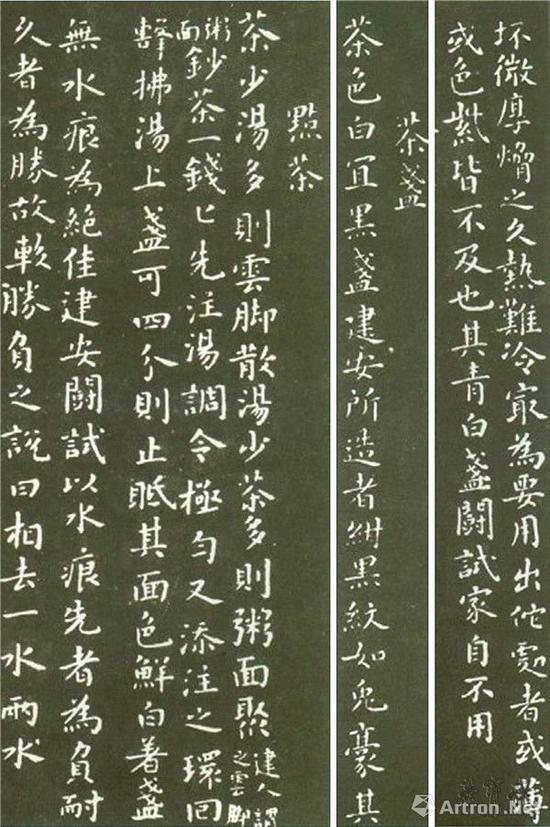 坯微厚熁之久熱難冷冣為要用出佗處者或薄
或色紫皆不及也其青白盞鬪試家自不用
茶盞
茶色白宜黑盞建安所造者紺黑紋如兔豪其
點茶
茶少湯多則雲脚散湯少茶多則粥面聚建人謂之雲脚
粥面鈔茶一錢匕先注湯調令極勻又添注之環回
擊拂湯上盞可四分則止眡其面色鮮白着盞
無水痕為絕佳建安鬪試以水痕先者為負耐
久者為勝故較勝負之說曰相去一水兩水
Artron.Net